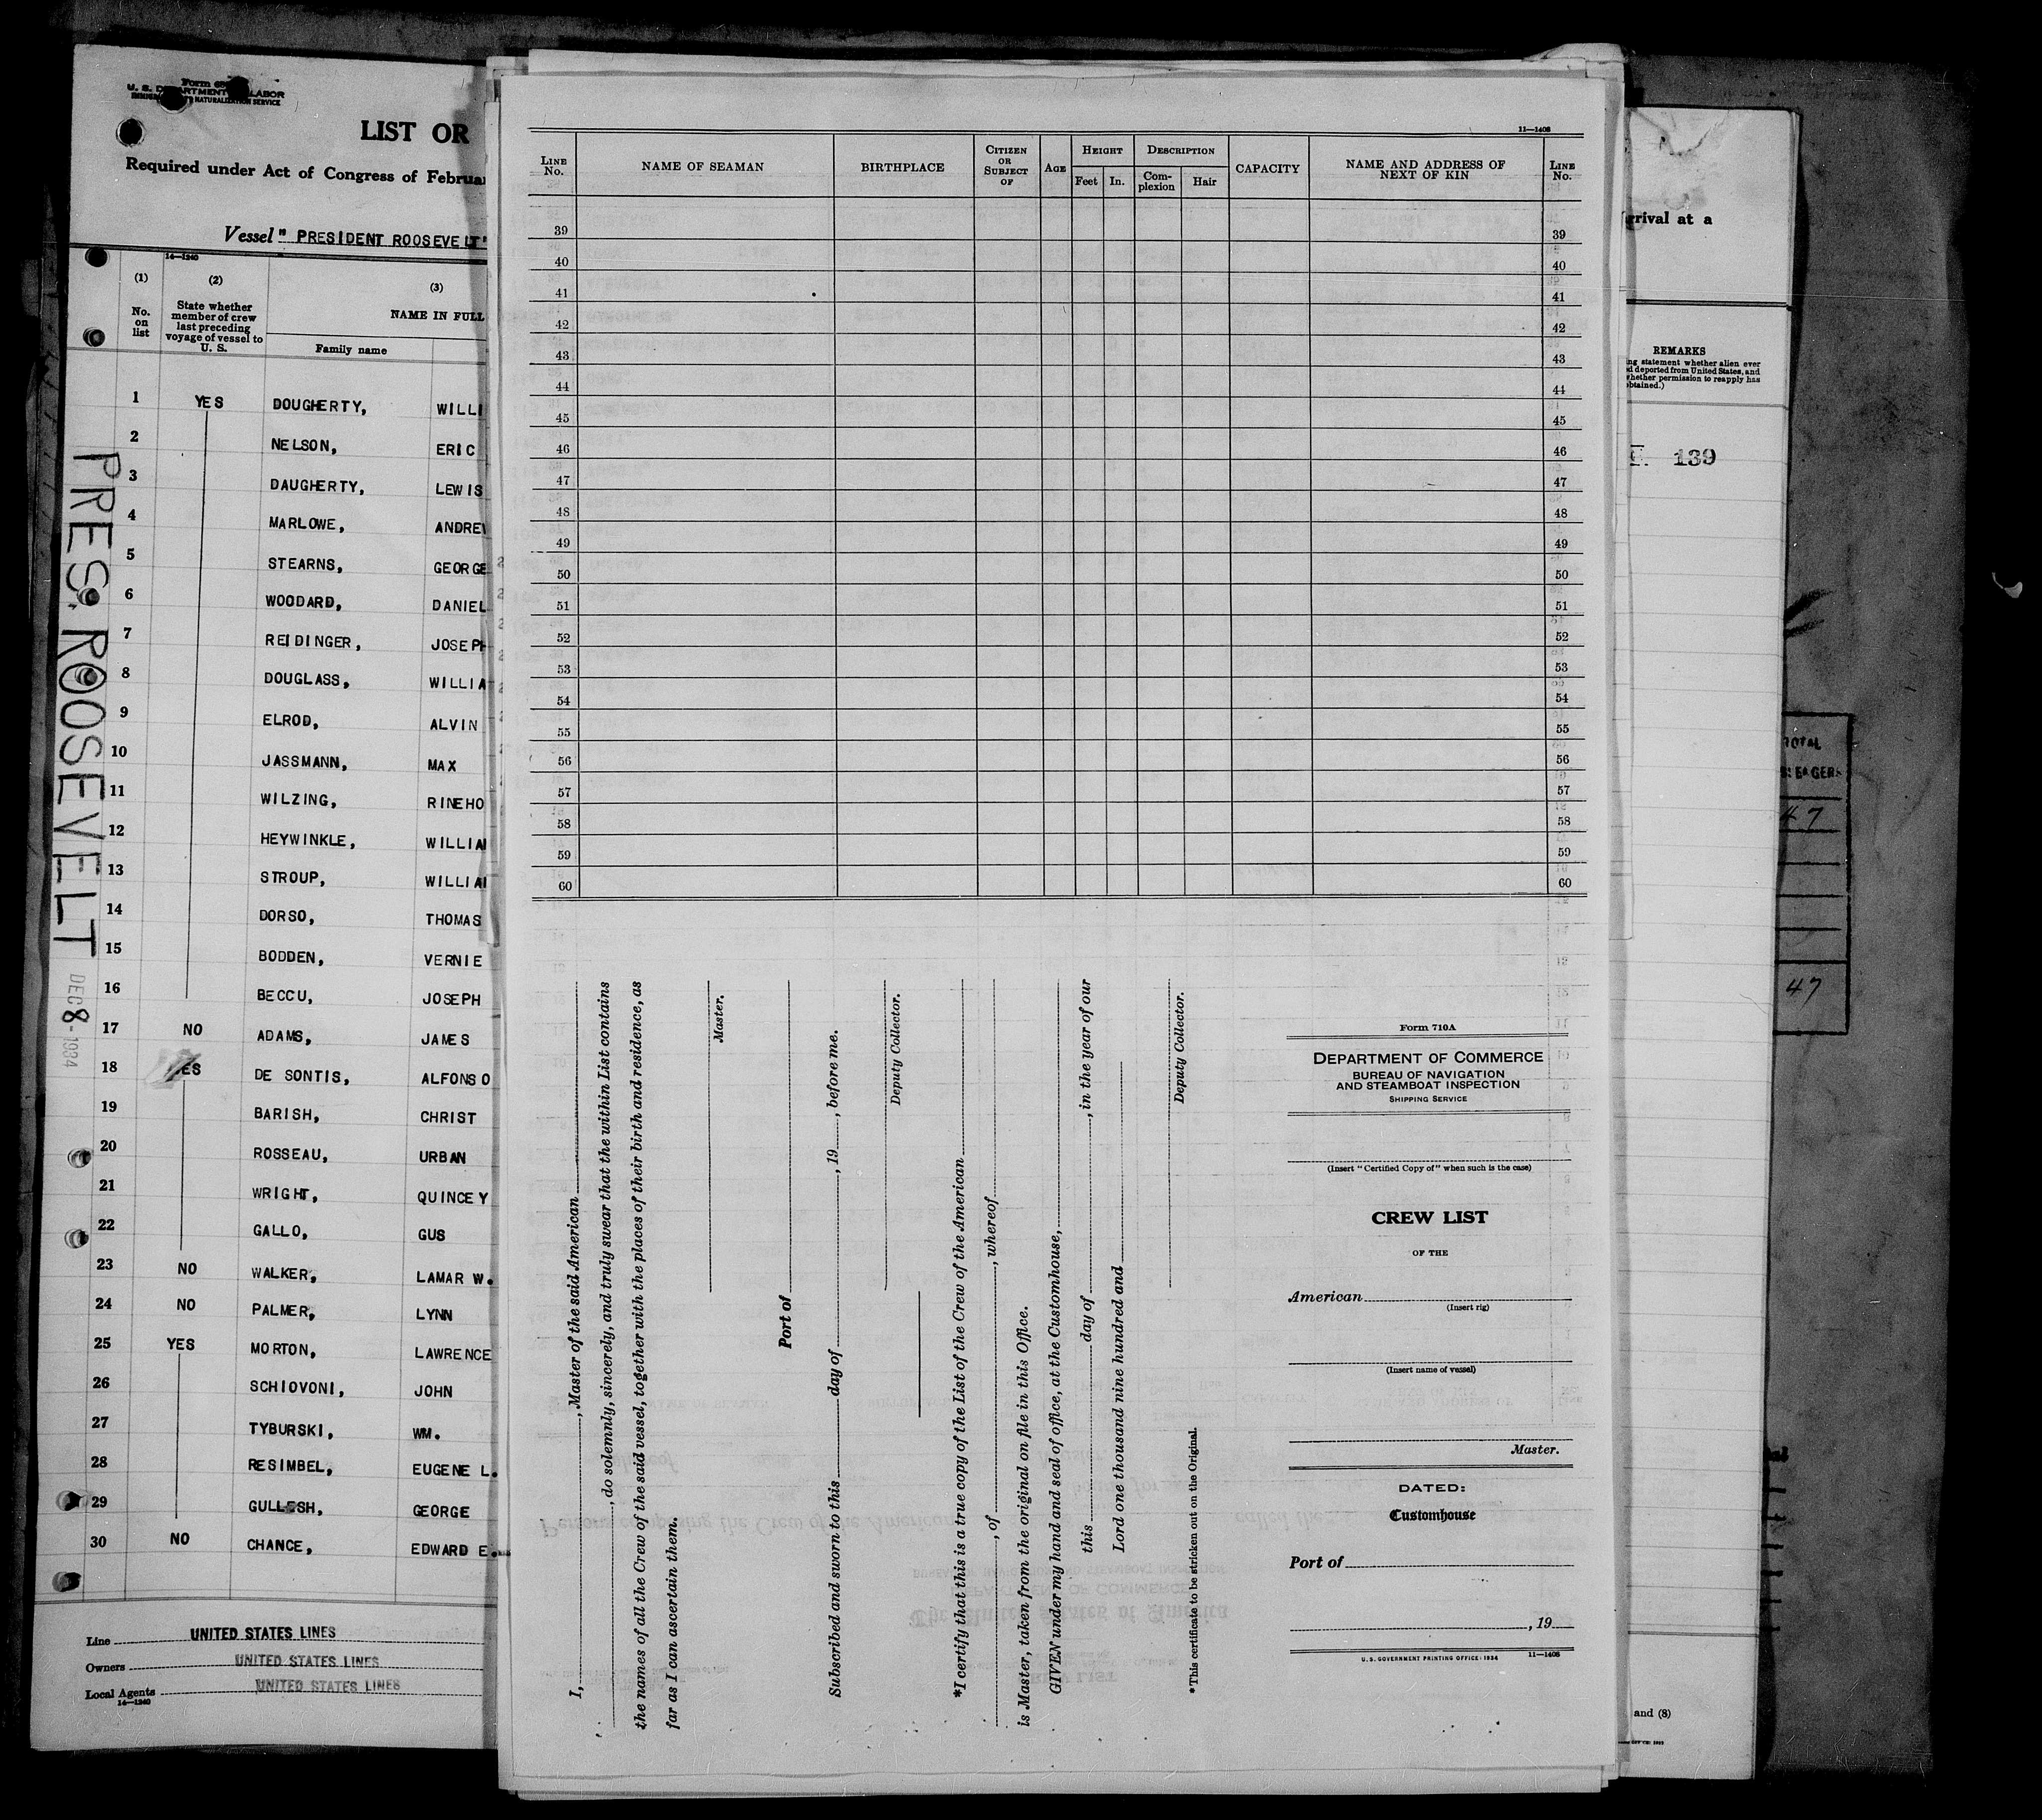 U. S. DEPARTMENT OF LABOR
NATURALIZATION SERVICE
LIST OR
Required under Act of Congress of Februa
Vessel " PRESIDENT ROOSEVELT"
14—1240
(1) (2) (3)
No. on list
State whether member of crew last preceding voyage of vessel to U. S.
NAME IN FULL
Family name
1 YES DOUGHERTY, WILLI
2 NELSON, ERIC
3 DAUGHERTY, LEWIS
4 MARLOWE, ANDREW
5 STEARNS, GEORGE
6 WOODARD, DANIEL
7 REIDINGER, JOSEPH
8 DOUGLASS, WILLIA
9 ELROD, ALVIN
10 JASSMANN, MAX
11 WILZING, RINEHO
12 HEYWINKLE, WILLIAM
13 STROUP, WILLIAM
14 DORSO, THOMAS
15 BODDEN, VERNIE
16 BECCU, JOSEPH
17 NO ADAMS, JAMES
18 YES DE SONTIS, ALFONSO
19 BARISH, CHRIST
20 ROSSEAU, URBAN
21 WRIGHT, QUINCEY
22 GALLO, GUS
23 NO WALKER, LAMAR W.
24 NO PALMER, LYNN
25 YES MORTON, LAWRENCE
26 SCHIOVONI, JOHN
27 TYBURSKI, WM.
28 RESIMBEL, EUGENE L.
29 GULLESH, GEORGE
30 NO CHANCE, EDWARD E.
PRES. ROOSEVELT
DEC 8 - 1934
Line UNITED STATES LINES
Owners UNITED STATES LINES
Local Agents UNITED STATES LINES
14—1240
11—1408
LINE No.
NAME OF SEAMAN
BIRTHPLACE
CITIZEN OR SUBJECT OF
AGE
HEIGHT
Feet In.
DESCRIPTION
Complexion Hair
CAPACITY
NAME AND ADDRESS OF NEXT OF KIN
LINE No.
39 39
40 40
41 41
42 42
43 43
44 44
45 45
46 46
47 47
48 48
49 49
50 50
51 51
52 52
53 53
54 54
55 55
56 56
57 57
58 58
59 59
60 60
I, , Master of the said American
, do solemnly, sincerely, and truly swear that the within List contains
the names of all the Crew of the said vessel, together with the places of their birth and residence, as
far as I can ascertain them.
Master.
Port of
Subscribed and sworn to this day of , 19 , before me.
Deputy Collector.
*I certify that this is a true copy of the List of the Crew of the American
, of , whereof
is Master, taken from the original on file in this Office.
GIVEN under my hand and seal of office, at the Customhouse,
this day of , in the year of our
Lord one thousand nine hundred and
Deputy Collector.
*This certificate to be stricken out on the Original.
Form 710A
DEPARTMENT OF COMMERCE
BUREAU OF NAVIGATION
AND STEAMBOAT INSPECTION
SHIPPING SERVICE
(Insert "Certified Copy of" when such is the case)
CREW LIST
OF THE
American
(Insert rig)
(Insert name of vessel)
Master.
DATED:
Customhouse
Port of
, 19
U. S. GOVERNMENT PRINTING OFFICE: 1934 11—1408
rrival at a
REMARKS
ng statement whether alien ever
d deported from United States, and
whether permission to reapply has
obtained.)
139
and (8)
TOTAL
47
47